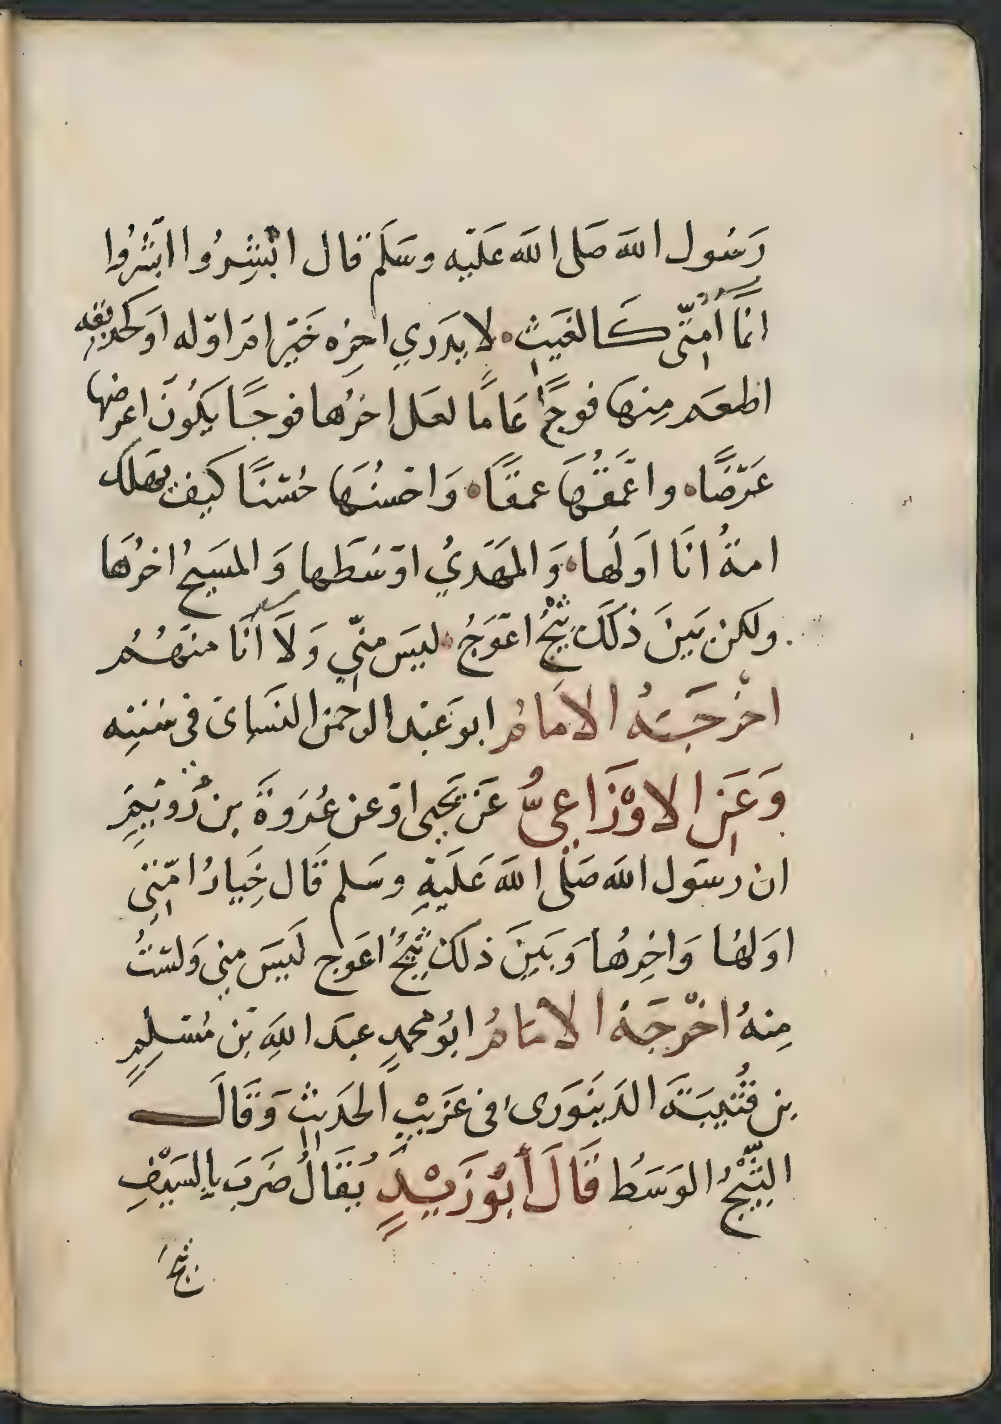 رَسُول الله صَلى الله عَليْه وسَلَم قال ابْشِرُوا ابْشُرُوا
انمَّا أُمتّى كَالغيَثِ لا يدَرَي اخِرِه خَيْر امَ اوّله اوَ كحَديقة
اطعَم مِنهَا فوجًا عَامًا لعَل اخرُها فوجًا يكُونَ اعرضها
عَرْضًا واعْمَقُهَا عمقًا وَاحْسنُهَا حُسْنًا كيَف يهلك
امةُ انَا اوَلُها وَالمهَديُ اوْسَطها وَالمسَيحُ اخرُهَا
ولكن بَينَ ذلكَ ثَبْجُ اعْوَجُ ليسَ منّي وَلاَ أنَا منهُم
اخْرجَهُ الامَامُ ابوعَبْد الرحمن النَسَاى فى سُننِه
وَعَن الاوْزَاعىُّ عَن يحيى اوْ عن عُروَةَ بن رُوَيْمِ
ان رسَول الله صَلّى الله عَلَيْهِ وسَلم قَال خَيارُ امّتِى
اوَلهُا وَاخِرهُا وَبَينَ ذلك ثبجُ اعوَج لَيسَ مِنِى وَلسْتُ
مِنهُ اخْرجَهُ الامَامُ ابُو محمدٍ عبَد اللهِ بْن مُسْلمٍ
بن قُتَيبَةَ الدينَوَرى فى غَرَيْبِ الحَديثِ وَقَالَ
الثَبْجُ الوَسَطُ قَالَ أبُوزَيْدٍ يُقَالُ ضَربَ بالسَيْفِ
ثبجَ